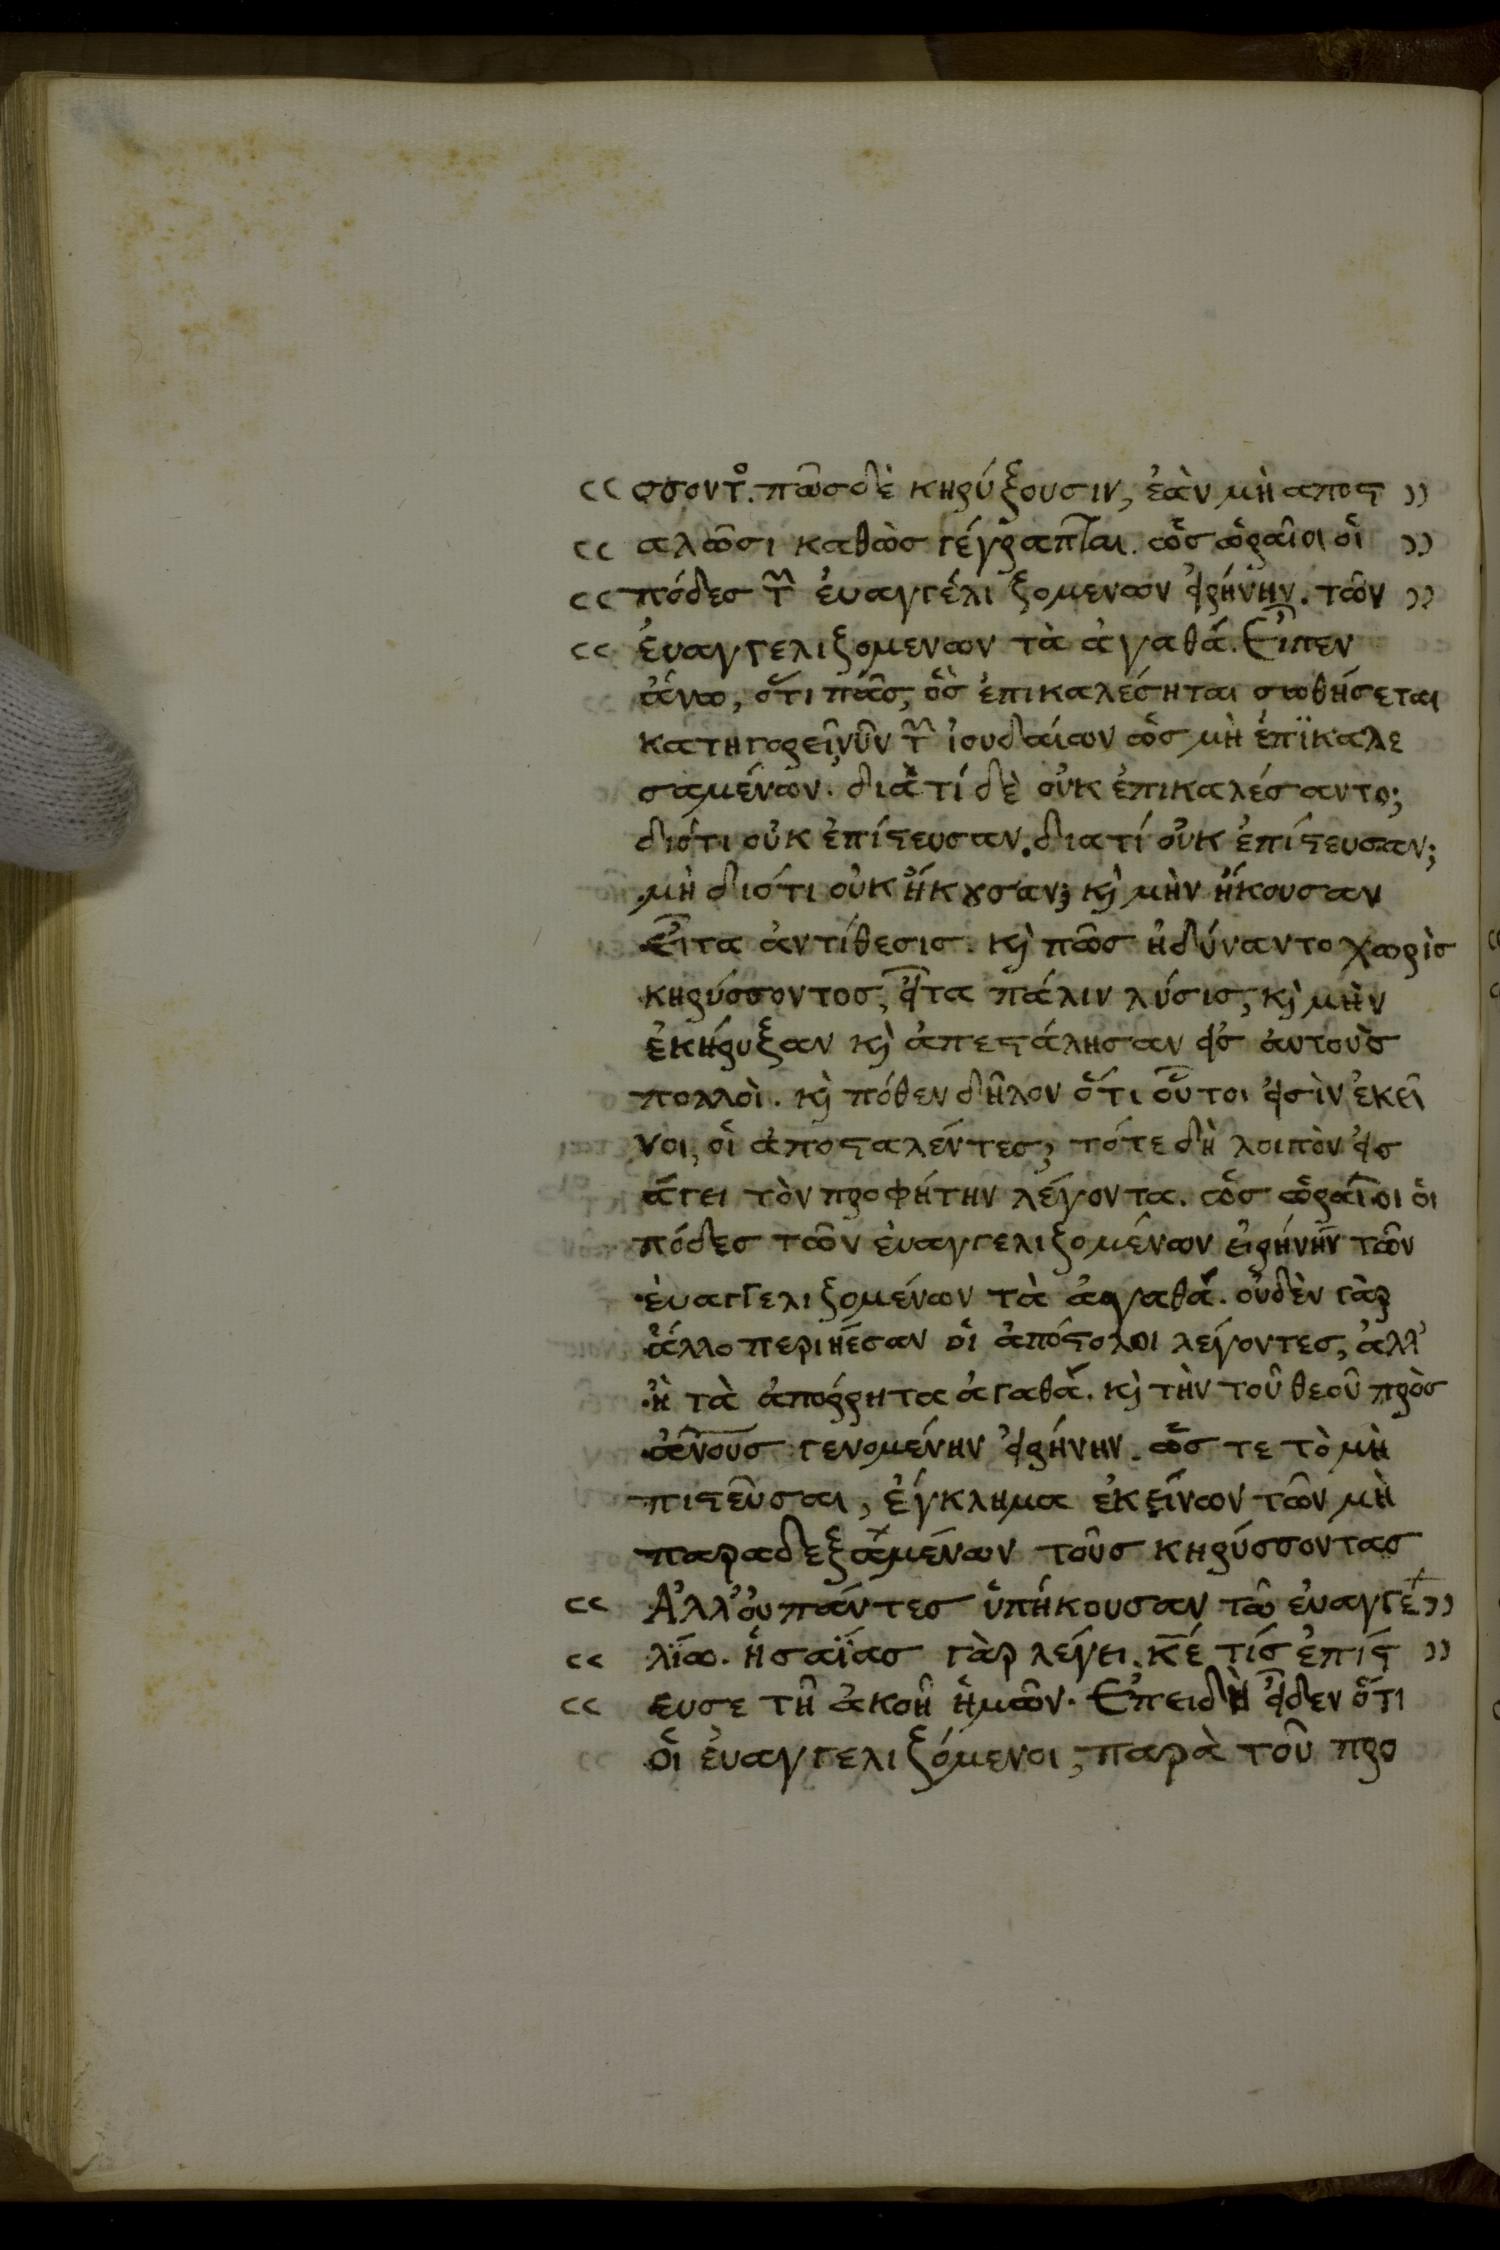 σσοντο. πῶς δὲ κηρύξουσιν, ἐὰν μὴ αποστ
αλῶσι καθὼς γέγραπται. ὡς ὡραῖοι οἱ
πόδες τῶν ἐυαγγέλιζομενων εἰρήνην. τῶν
ἐυαγγελιζομενων τὰ ἀγαθά. Εἶπεν
ἄνω, ὅτι πᾶς, ὃς ἐπικαλέσηται σωθήσεται
κατηγορεῖ νῦν τῶν ἰουδαίων ὡς μὴ ἐπϊκαλε
σαμένων. διὰ τί δὲ οὐκ ἐπικαλέσαντο;
διότι οὐκ ἐπίστευσαν. διατί οὐκ ἐπίστευσαν;
μὴ διότι οὐκ ἤκουσαν; κὶ μὴν ἤκουσαν
Εἶτα ἀντίθεσις. κὶ πῶς ἠδύναντο χωρὶς
κηρύσσοντος, εἶτα πάλιν λύσις, κὶ μὴν
ἐκήρυξαν κὶ ἀπεστάλησαν εἰς ἀυτοὺς
πολλοὶ. κὶ πόθεν δῆλον ὅτι οὗτοι εἰσὶν ἐκεῖ
νοι, οἱ ἀποσταλέντες, τότε δὴ λοιπὸν εἰσ
άγει τὸν προφήτην λέγοντα. ὡς ὡραῖοι οἱ
πόδες τῶν ἐυαγγελιζομένων εἰρήνην τῶν
ἐυαγγελιζομένων τὰ ἀγαθά. οὐδὲν γὰρ
ἄλλο περιήεσαν οἱ ἀπόστολοι λέγοντες, ἀλλ'
ἢ τὰ ἀπόρρητα ἀγαθά. κὶ τὴν τοῦ θεοῦ πρὸς
ἀ̅ν̅ο̅υς γενομένην εἰρήνην. ὥς τε τὸ μὴ
πιστεῦσαι, ἐγκλημα ἐκείνων τῶν μὴ
παραδεξαμένων τοὺς κηρύσσοντας
Ἀλλ' ὀυ πάντες ὑπήκουσαν τῶ ἐυαγγε
λίω. ἠσαΐας γὰρ λέγει. κ̅ε̅ τίς ἐπίστ
ευσε τῆ ἀκοῆ ἡμῶν. Ἐπειδὴ εἶδεν ὅτι
οἱ ἐυαγγελιζόμενοι, παρὰ τοῦ προ